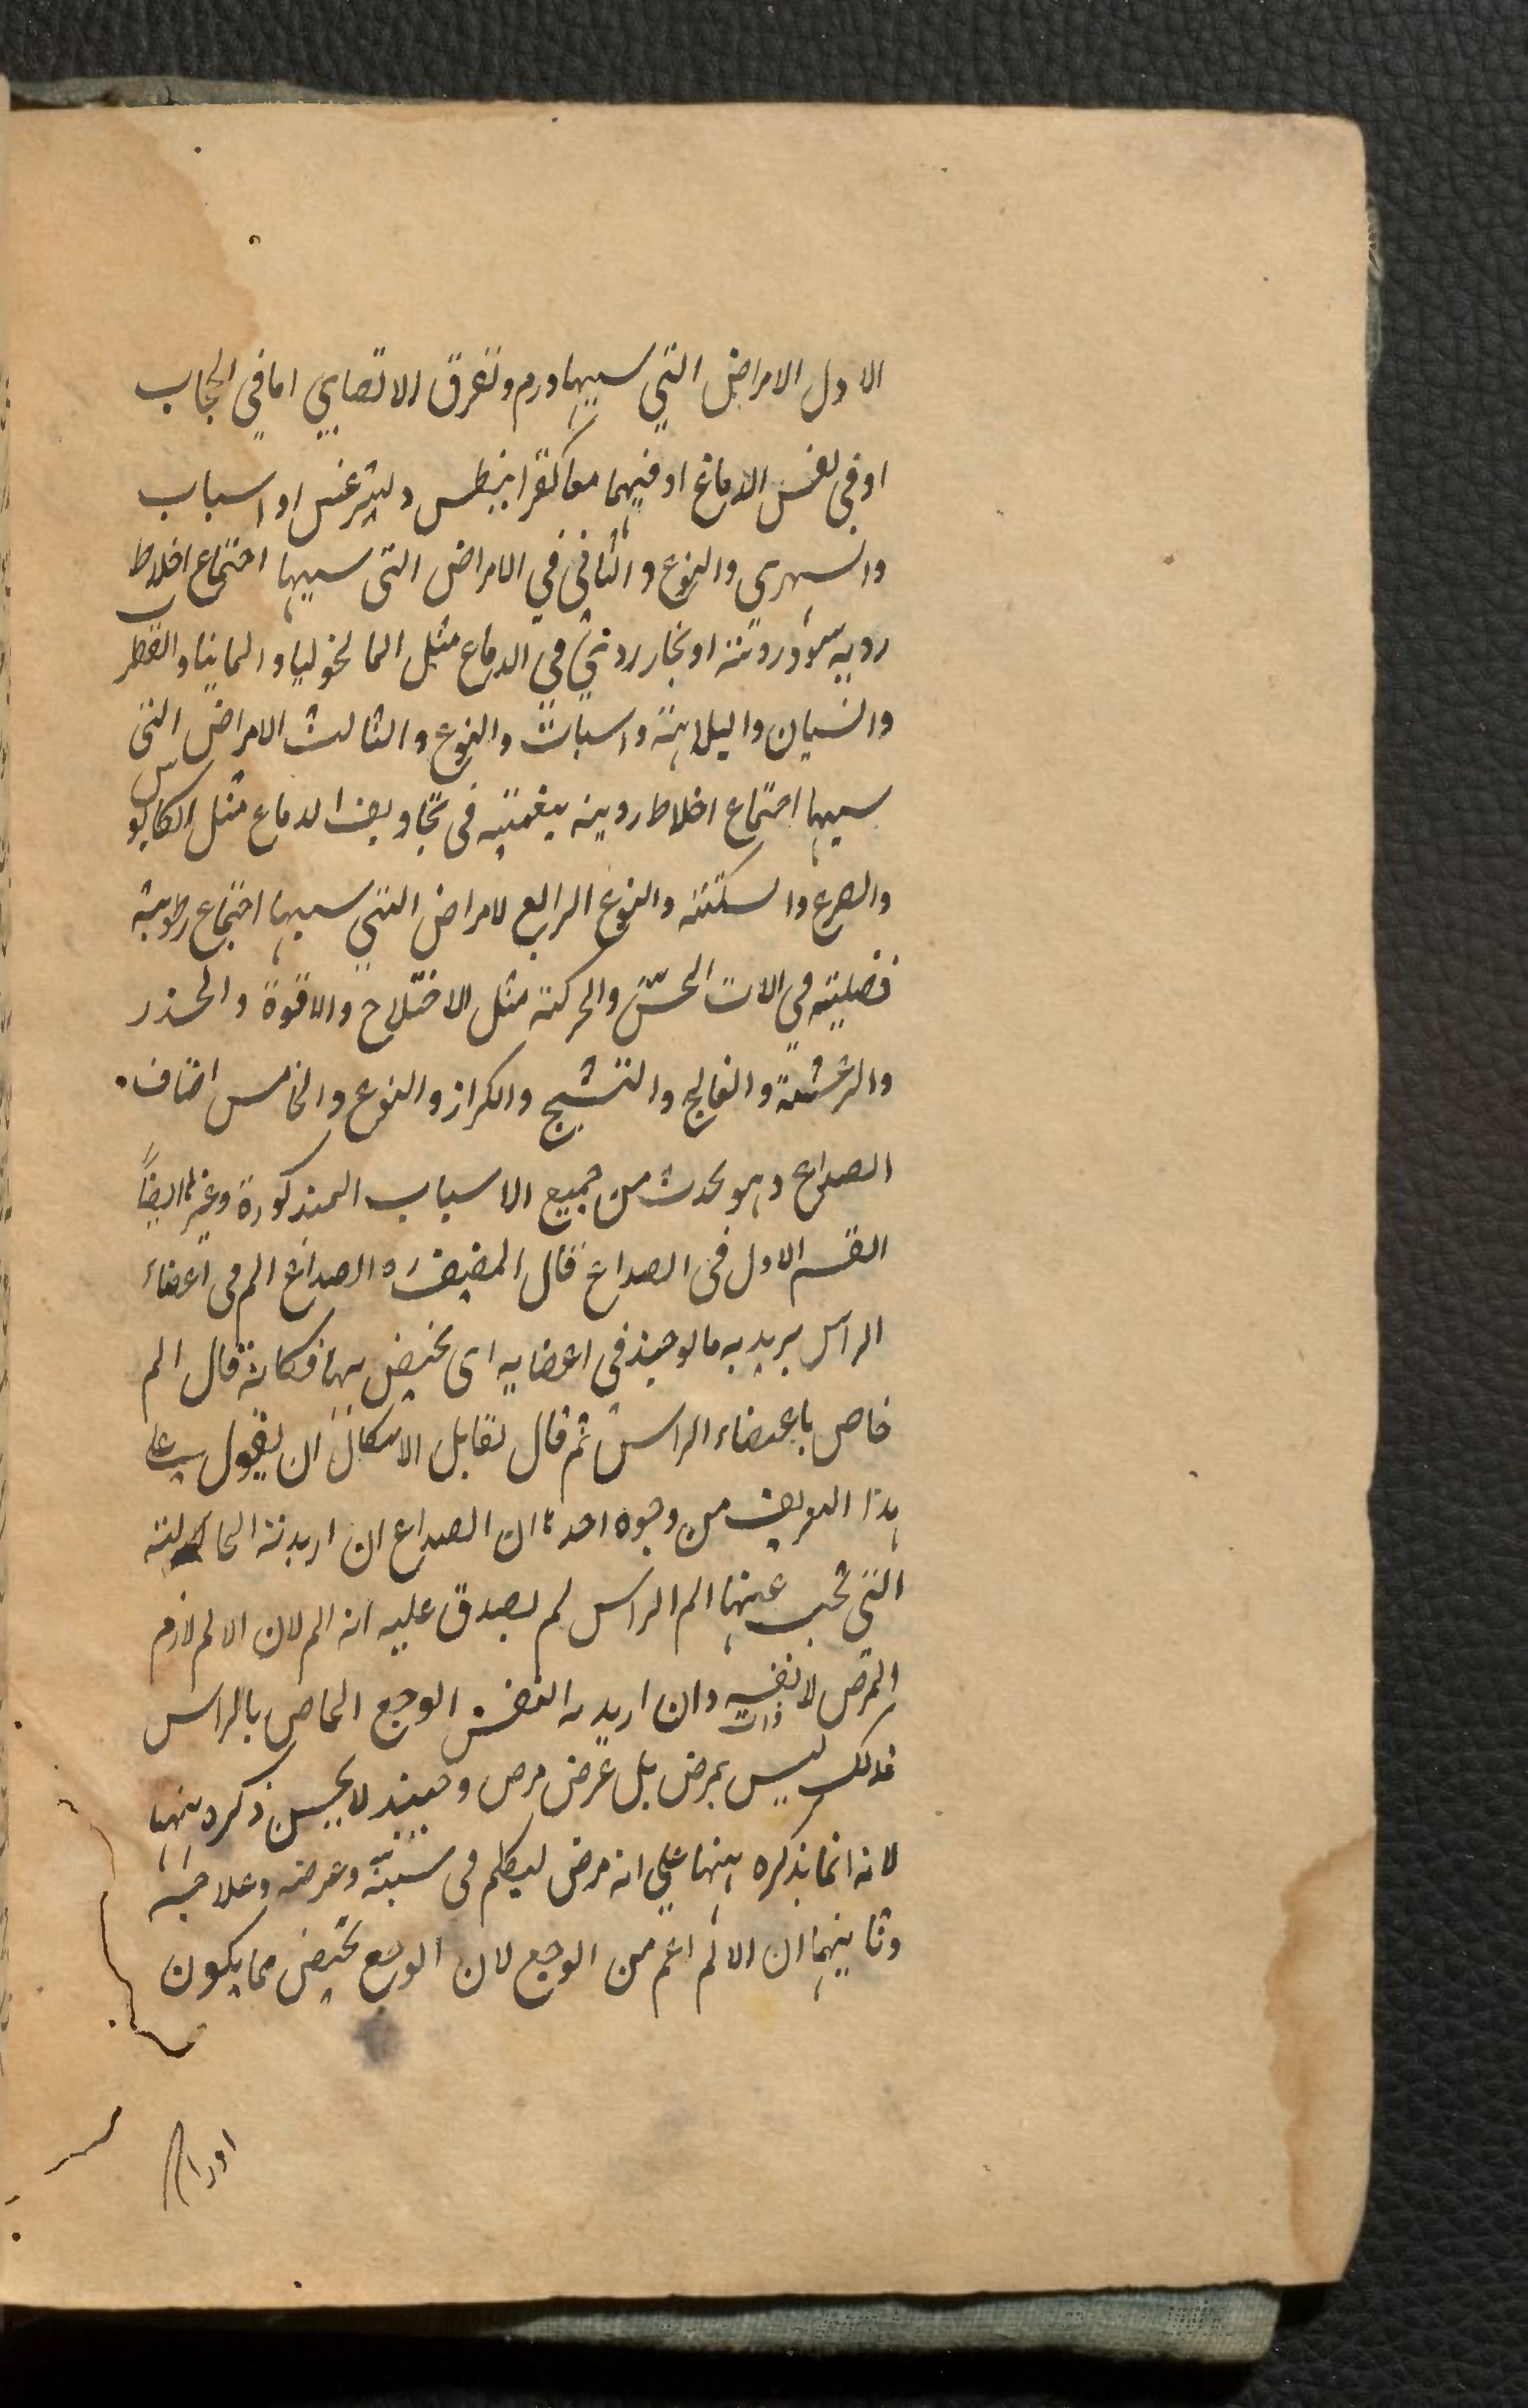 الاول الامراض التي سببها ورم وتفرق الاتصاي اما في الحجاب
او في نفس الدماغ او فيهما معا كقرانيطس وليثرغس او اسباب
والسهري والنوع والثاني في الامراض التي سببها اجتماع اخلاط
رديه او بخار ردي في الدماغ مثل المالنخوليا والمانيا والقطرب
والنسيان والبلاهته واسبات والنوع والثالث الامراض التي
سببها اجتماع اخلاط رديئه بلغميته في تجاويف الدماغ مثل الكابوس
والصرع والسكتته والنوع الرابع لامراض التي سببها اجتماع رطوبته
فضليته في الات الحسّ والحركته مثل الاختلاج والاقوة والخدر
والرعشته والفالج والتشنج والكزاز والنوع والخامس اصناف
الصداع وهو يحدث من جميع الاسباب المذكورة وغيرها ايضاً
القسم الاول في الصداع قال المصنف ره الصداع الم في اعضاء
الراس يريد به ما يوجد في اعضايه اى يختص بها فكانه قال الم
خاص باعضاء الراس ثم قال لقايل الاشكال ان يقول على
هذا التعريف من وجوه احدها ان الصداع ان اريد به الحالته
التي تجب عنها الم الراس لم يصدق عليه انه الم لان الالم لازم
المرض لا نفسه وان اريد به النفس الوجع الخاص بالراس
ذات
فذلك ليس بمرض بل عرض مرض وحينئذ لا يحسن ذكره ههنا
لانه انما يذكره ههنا على انه مرض ليتكلم في سببه وعرضه وعلاجه
وثانيهما ان الالم اعم من الوجع لان الوجع يختص مما يكون
اورام